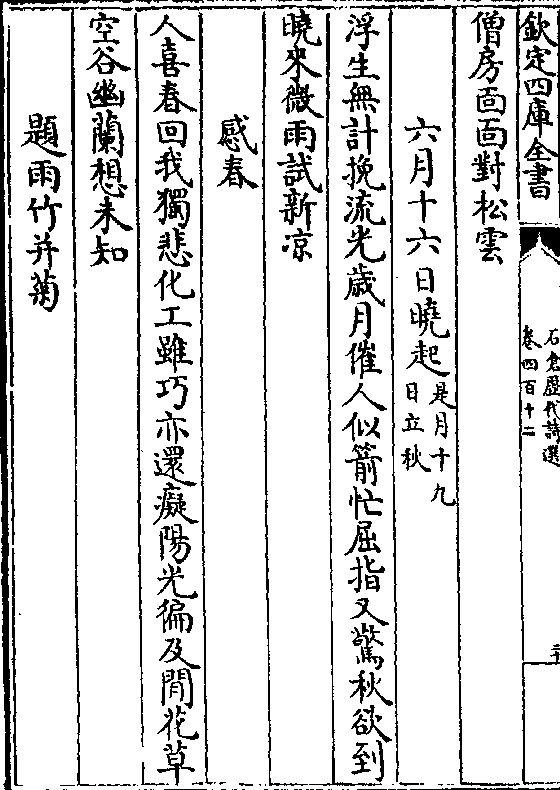 欽定四庫全書
石倉歴代詩選
卷四百十二
僧房面面對松雲
六月十六日曉起是月十九日立秋
浮生無計挽流光歳月催人似箭忙屈指又驚秋欲到
曉來微雨試新凉
感春
人喜春回我獨悲化工雖巧亦還癡陽光徧及閒花草
空谷幽蘭想未知
題雨竹并菊